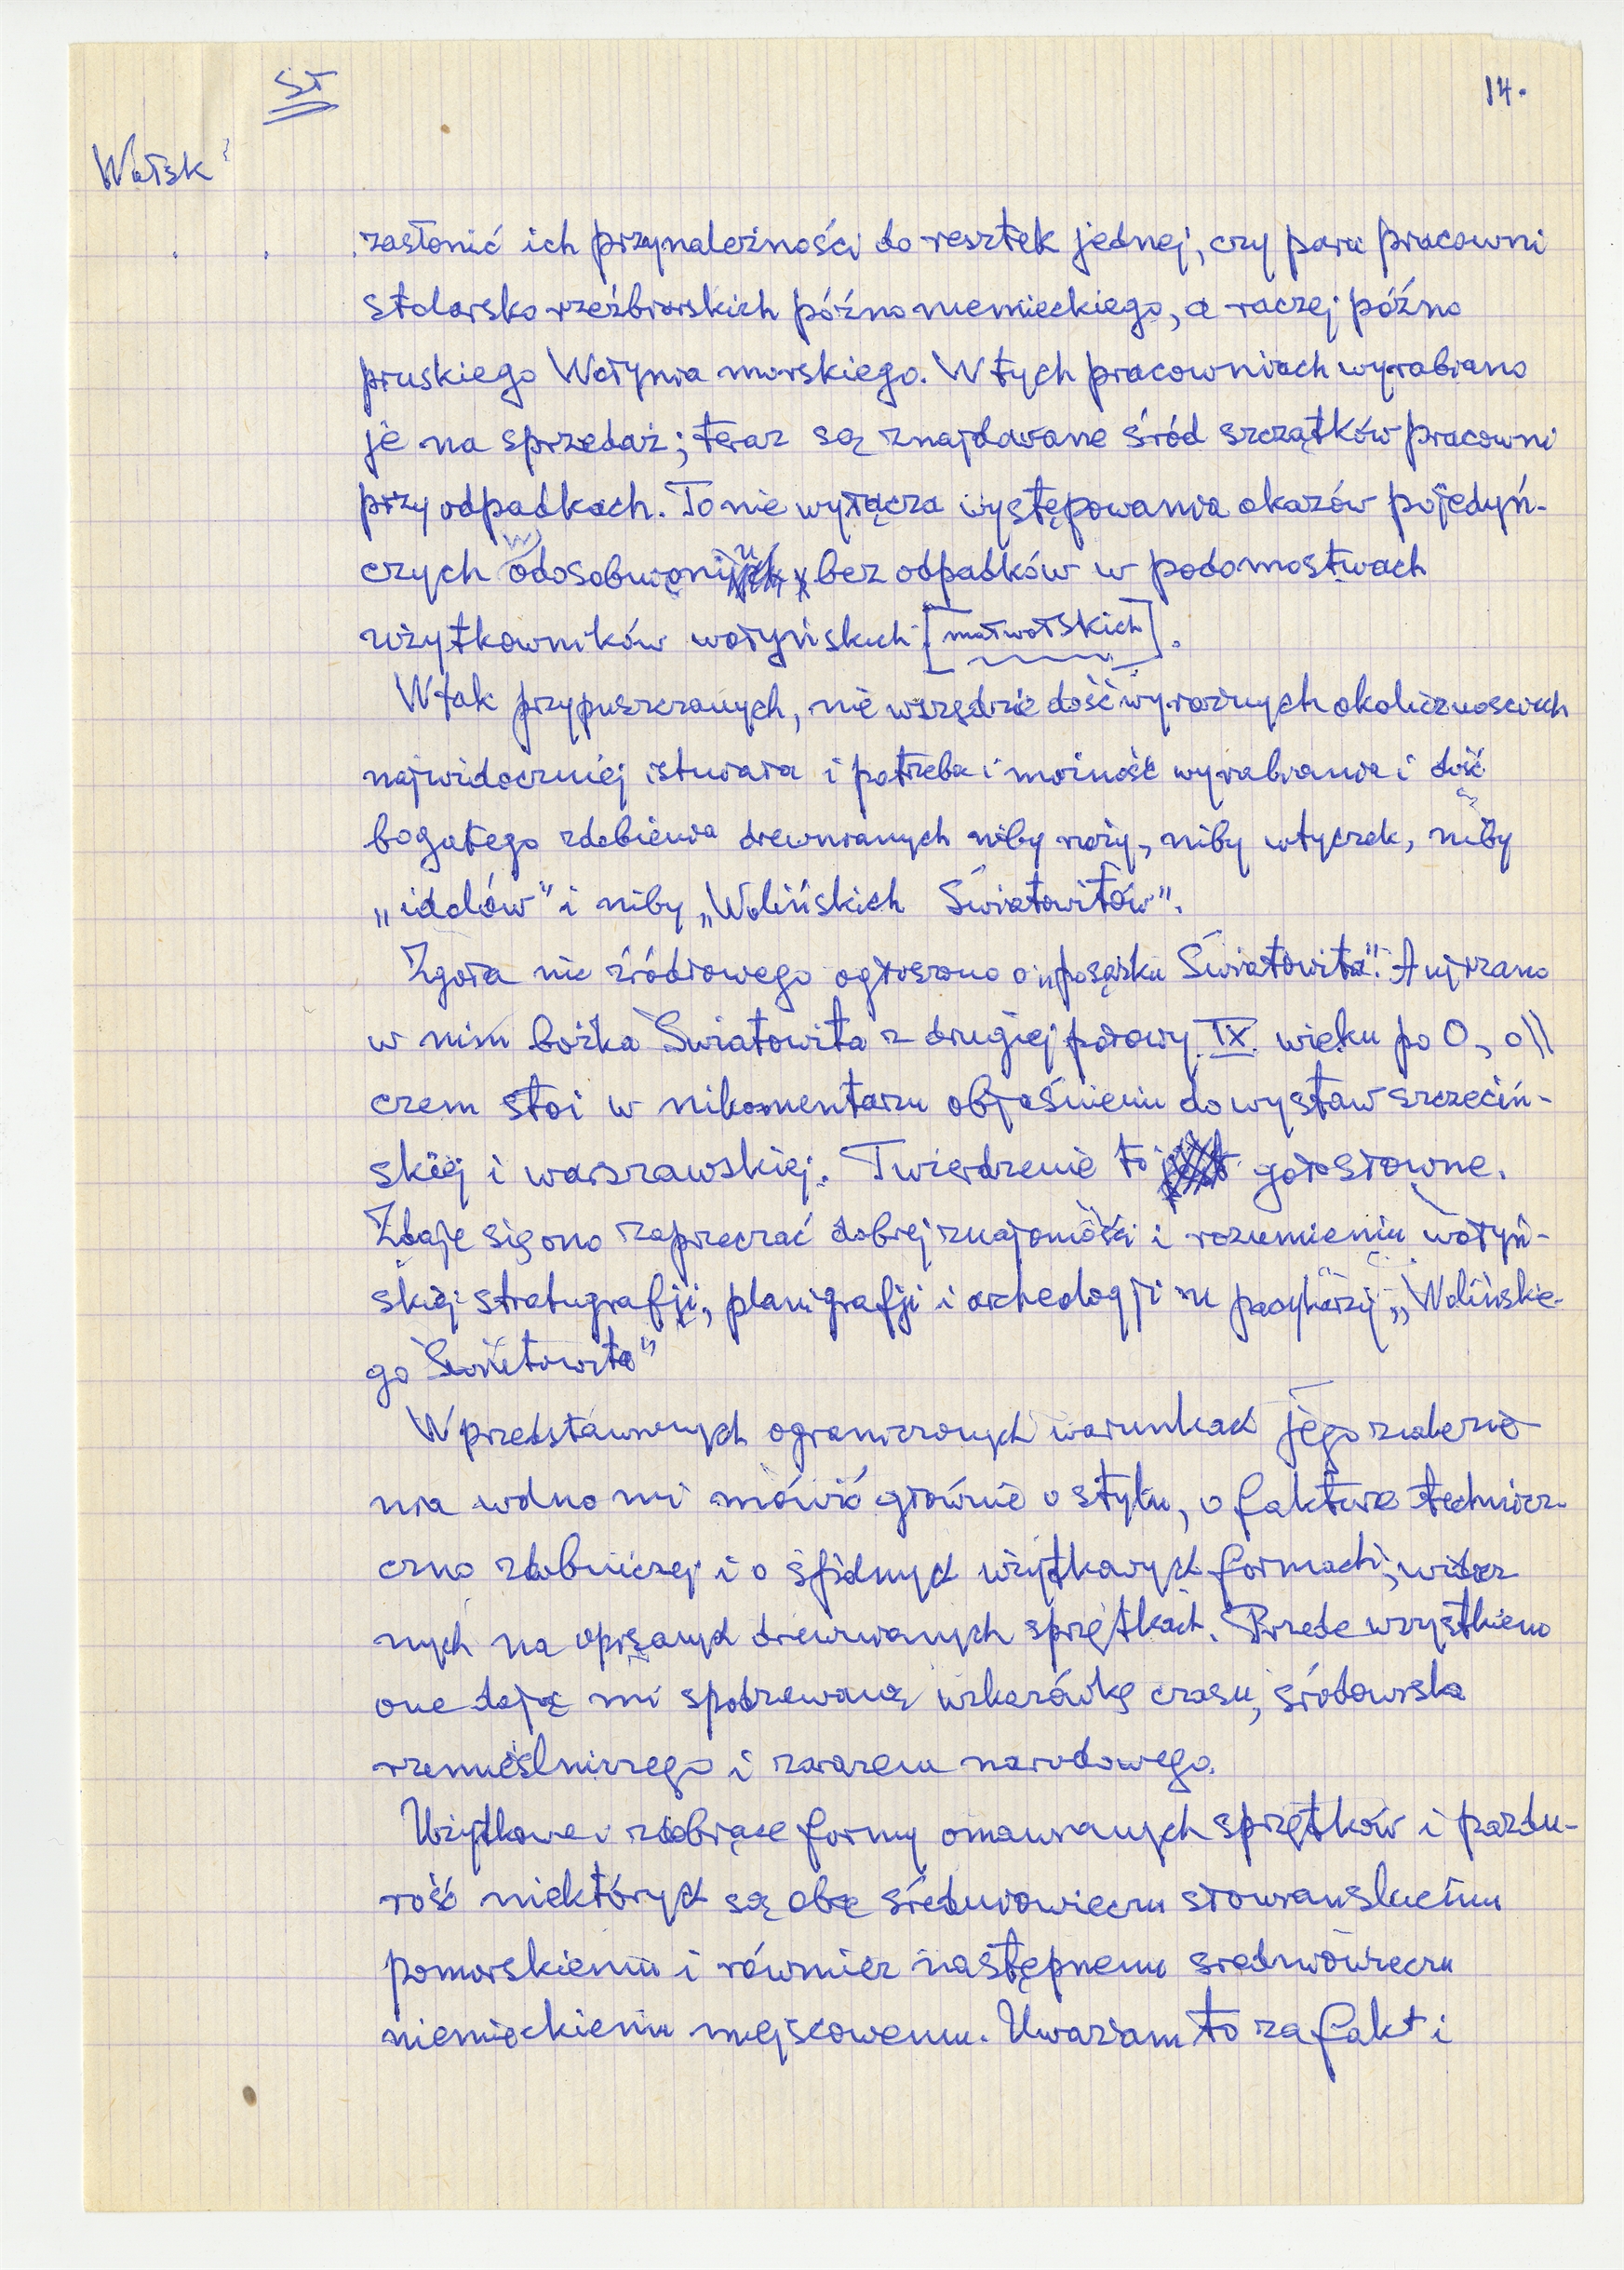 ST
14.
Wołsk
zasłonić ich przynależności do resztek jednej, czy paru pracowni
stolarsko rzeźbiarskich późno niemieckiego, a raczej późno
pruskiego Wołynia morskiego. W tych pracowniach wyrabiano
je na sprzedaż; teraz są znajdowane śród szczątków pracowni
przy odpadkach. To nie wyłącza występowania okazów pojedyń-
czych w odosobnieniu bez odpadków w podomostwach
użytkowników wołyńskich [małwołskich].
W tak przypuszczanych, nie wszędzie dość wyraźnych okolicznościach
najwidoczniej istniała i potrzeba i możność wyrabiania i dość
bogatego zdobienia drewnianych niby noży, niby wtyczek, niby
„idolów" i niby „Wolińskich Światowitów".
Zgoła nic źródłowego ogłoszono o „posążku Światowita". A ujrzano
w nim bożka Światowita z drugiej połowy IX. wieku po 0, o
czem stoi w nikomentarzu objaśnieniu do wystaw szczeciń-
skiej i warszawskiej. Twierdzenie to gołosłowne.
Zdaje się ono zaprzeczać dobrej znajomości i rozumieniu wołyń-
skiej stratygrafji, planigrafji i archeologji „Wolińskie-
go Światowita"
W przedstawionych ograniczonych warunkach jego znalezie-
nia wolno mi mówić głównie o stylu, o fakturze technicz-
czno zdobniczej i o użytkowych formach, widocz
nych na opisanych drewnianych sprzętkach. Przede wszystkiem
one dają mi spodziewaną wskazówkę czasu, środowiska
rzemieślniczego i zarazem narodowego.
Użytkowe i zdobiące formy omawianych sprzętków i pazdu-
rość niektórych są obce średniowieczu słowiańskiemu
pomorskiemu i również następnemu średniowieczu
niemieckiemu miejscowemu. Uważam to za fakt i